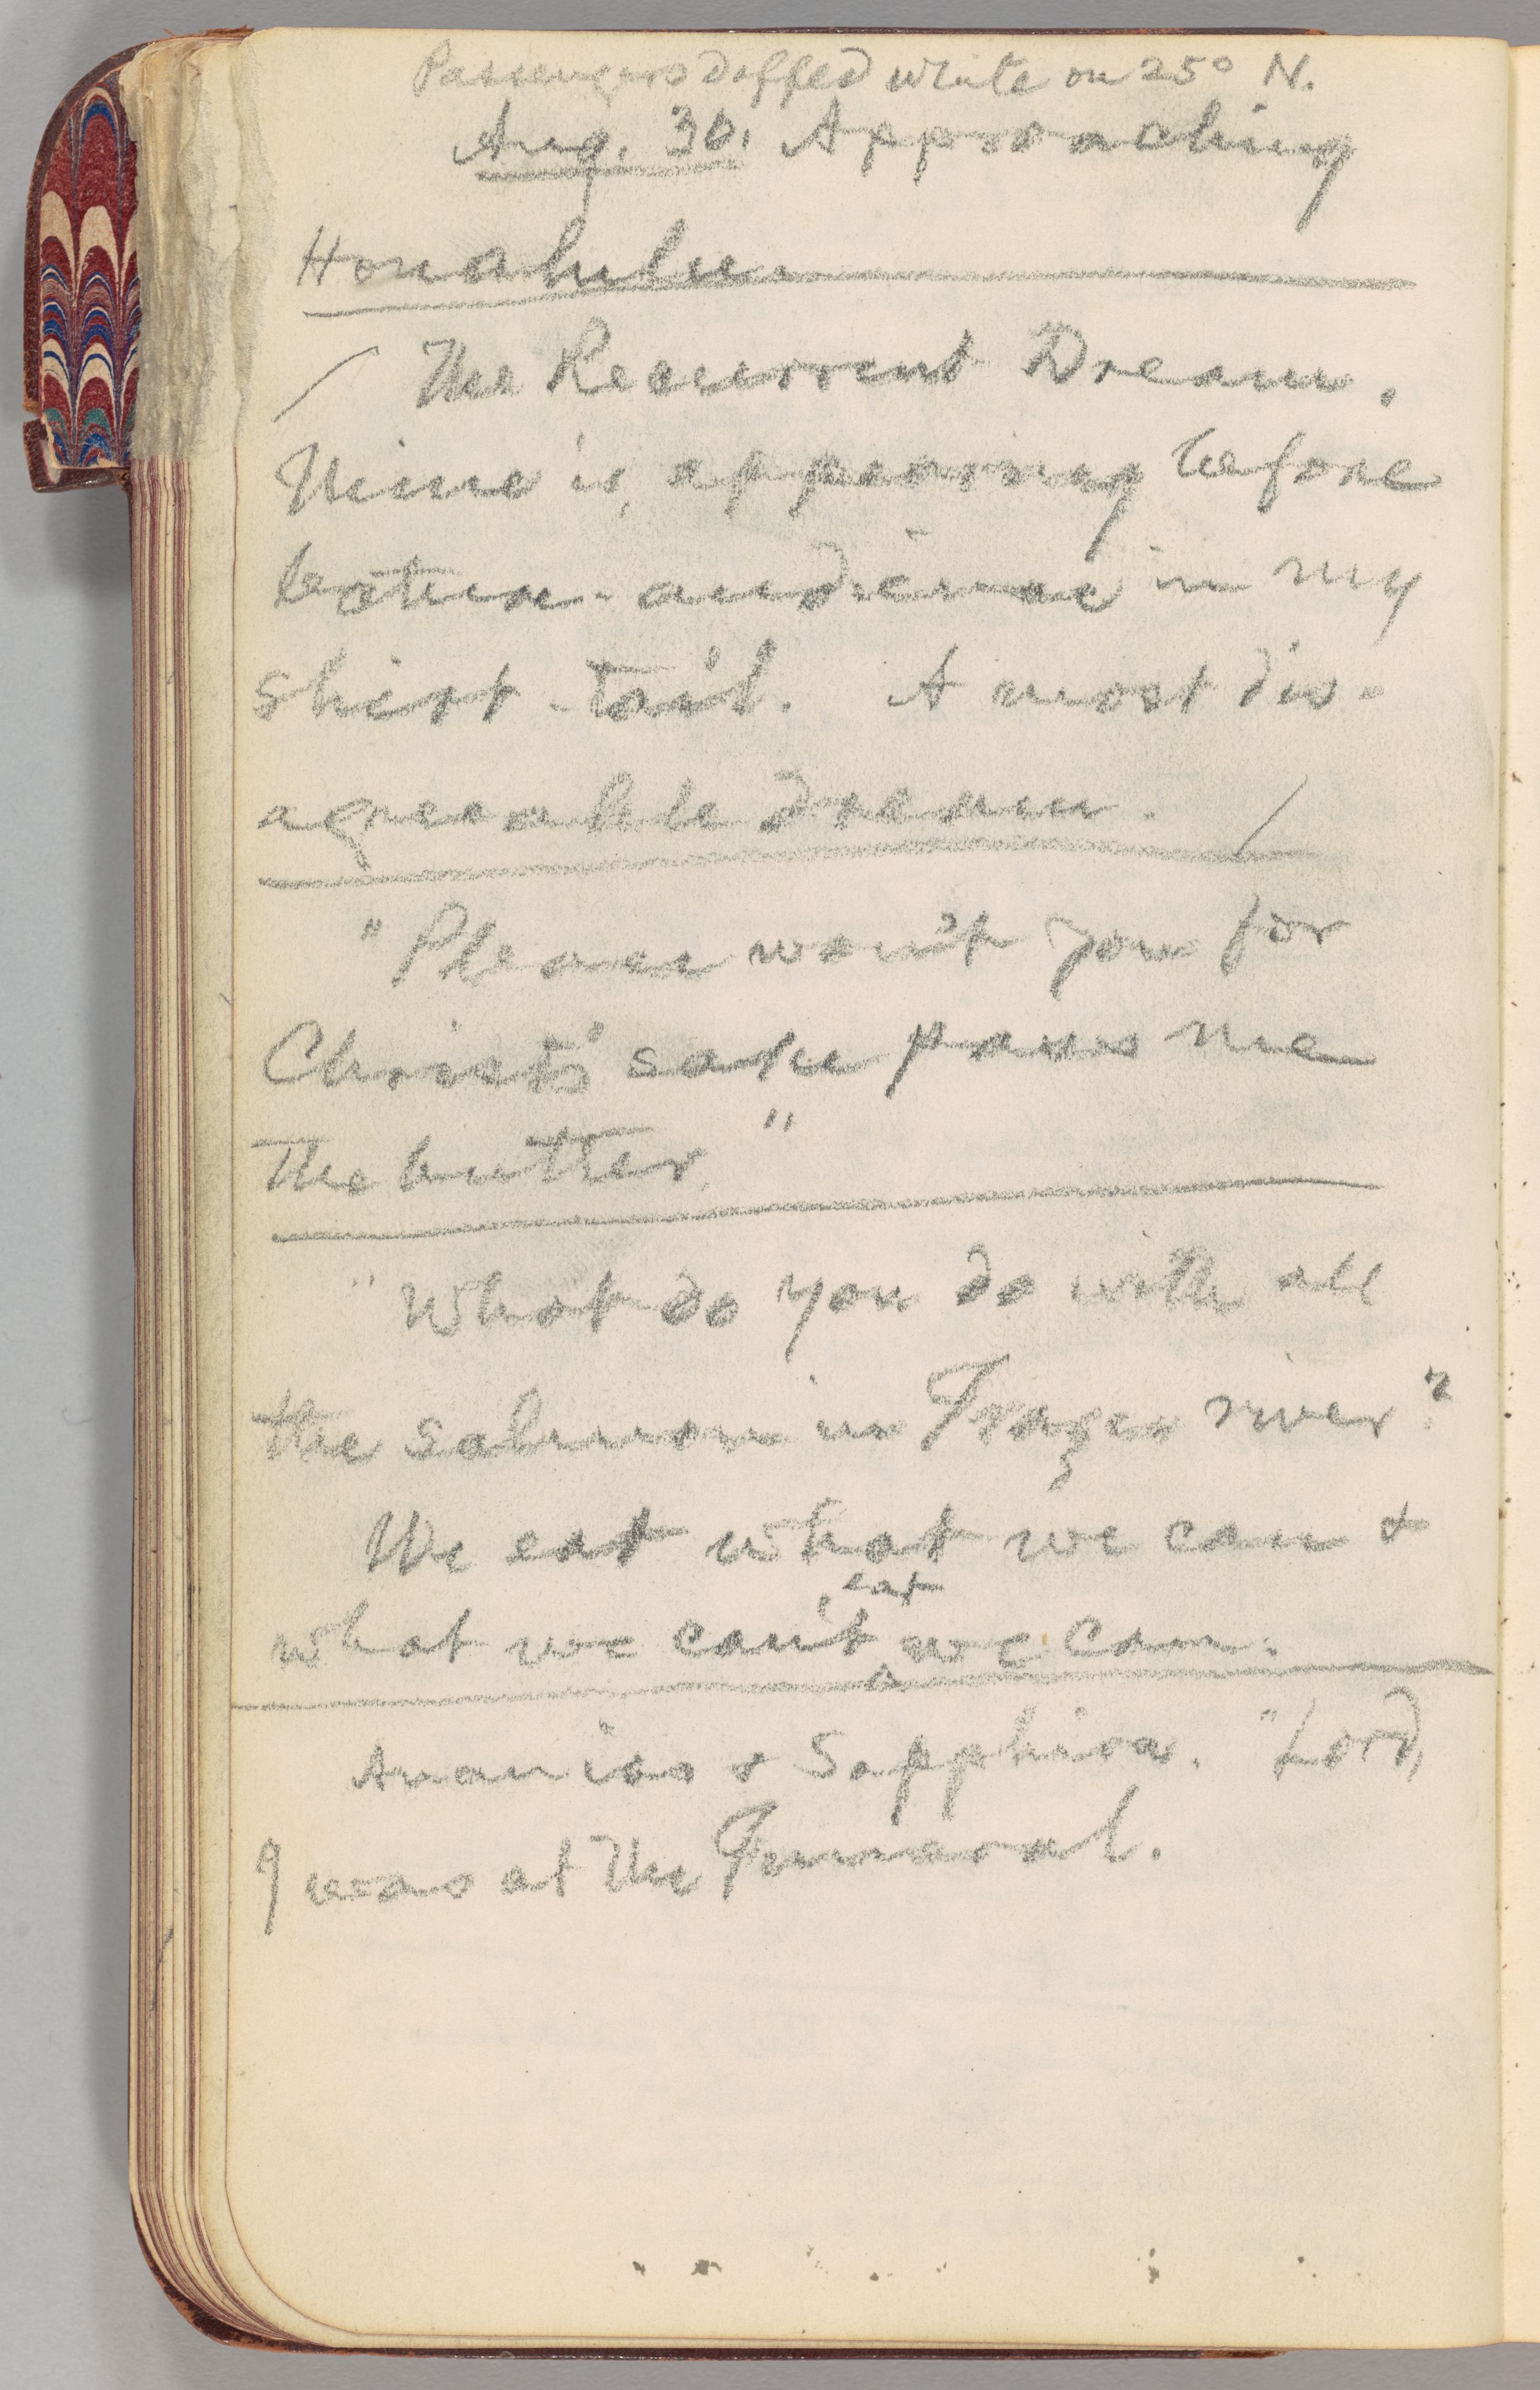 Passengers doffed white on 25° N.
Aug. 30. Approaching
Honolulu.
The Recurrent Dream.
Mine is, appearing before
lecture-audience in my
shirt-tail. A most dis-
agreeable dream.
"Please won't you for
Christ's sake pass me
the butter."
"What do you do with all
the salmon in Frazer river?
We eat what we can &
eat
what we can't we can.
Ananias & Sapphira. "Lord,
I was at the Funeral.